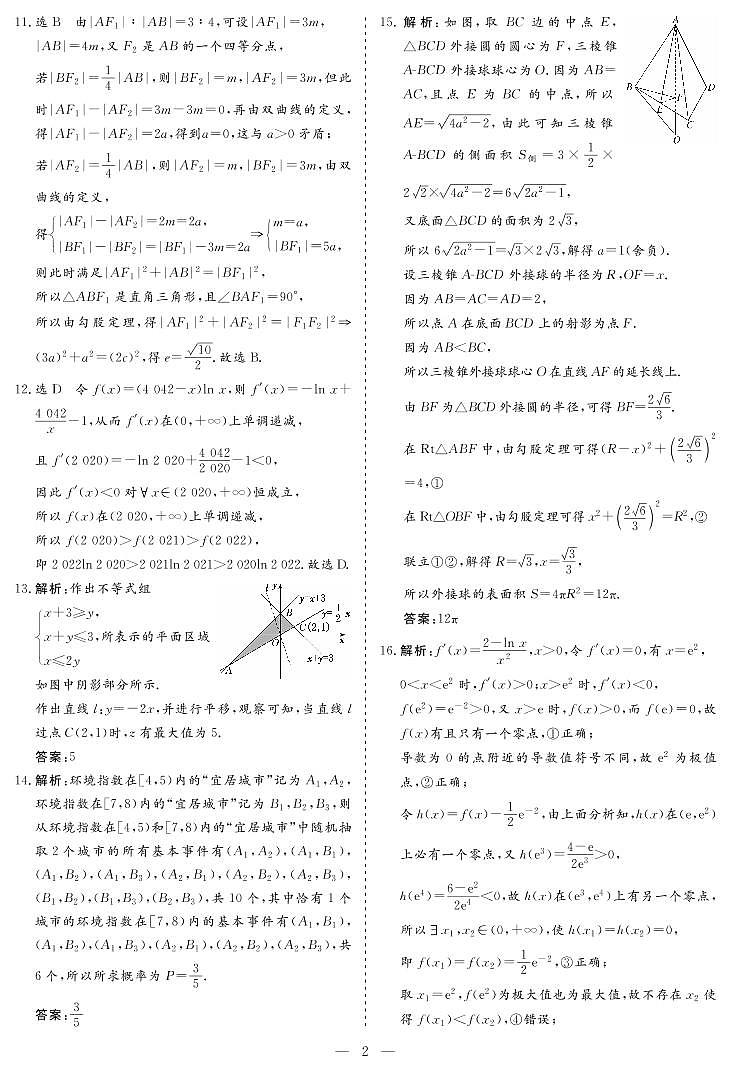 11.选 B 由|AF₁|∶|AB|=3∶4,可设|AF₁|=3m,
|AB|=4m,又 F₂ 是 AB 的一个四等分点,
若|BF₂|=1/4|AB|,则|BF₂|=m,|AF₂|=3m,但此
时|AF₁|-|AF₂|=3m-3m=0,再由双曲线的定义,
得|AF₁|-|AF₂|=2a,得到a=0,这与 a>0 矛盾;
若|AF₂|=1/4|AB|,则|AF₂|=m,|BF₂|=3m,由双
曲线的定义,
得{|AF₁|-|AF₂|=2m=2a, |BF₁|-|BF₂|=|BF₁|-3m=2a ⇒ {m=a, |BF₁|=5a,
则此时满足|AF₁|²+|AB|²=|BF₁|²,
所以△ABF₁ 是直角三角形,且∠BAF₁=90°,
所以由勾股定理,得|AF₁|²+|AF₂|²=|F₁F₂|²⇒
(3a)²+a²=(2c)²,得 e=√10/2.故选 B.
12.选 D 令 f(x)=(4 042-x)ln x,则 f′(x)=-ln x+
4 042/x-1,从而 f′(x)在(0,+∞)上单调递减,
且 f′(2 020)=-ln 2 020+4 042/2 020-1<0,
因此 f′(x)<0 对∀x∈(2 020,+∞)恒成立,
所以 f(x)在(2 020,+∞)上单调递减,
所以 f(2 020)>f(2 021)>f(2 022),
即 2 022ln 2 020>2 021ln 2 021>2 020ln 2 022.故选 D.
13.解析:作出不等式组
{x+3≥y, x+y≤3, x≤2y 所表示的平面区域
如图中阴影部分所示.
作出直线 l:y=-2x,并进行平移,观察可知,当直线 l
过点 C(2,1)时,z 有最大值为 5.
答案:5
14.解析:环境指数在[4,5)内的“宜居城市”记为 A₁,A₂,
环境指数在[7,8)内的“宜居城市”记为 B₁,B₂,B₃,则
从环境指数在[4,5)和[7,8)内的“宜居城市”中随机抽
取 2 个城市的所有基本事件有(A₁,A₂),(A₁,B₁),
(A₁,B₂),(A₁,B₃),(A₂,B₁),(A₂,B₂),(A₂,B₃),
(B₁,B₂),(B₁,B₃),(B₂,B₃),共 10 个,其中恰有 1 个
城市的环境指数在[7,8)内的基本事件有(A₁,B₁),
(A₁,B₂),(A₁,B₃),(A₂,B₁),(A₂,B₂),(A₂,B₃),共
6 个,所以所求概率为 P=3/5.
答案:3/5
15.解析:如图,取 BC 边的中点 E,
△BCD 外接圆的圆心为 F,三棱锥
A-BCD 外接球球心为 O.因为 AB=
AC,且点 E 为 BC 的中点,所以
AE=√(4a²-2),由此可知三棱锥
A-BCD 的侧面积 S侧=3×1/2×
2√2×√(4a²-2)=6√(2a²-1),
又底面△BCD 的面积为 2√3,
所以 6√(2a²-1)=√3×2√3,解得 a=1(舍负).
设三棱锥 A-BCD 外接球的半径为 R,OF=x.
因为 AB=AC=AD=2,
所以点 A 在底面 BCD 上的射影为点 F.
因为 AB<BC,
所以三棱锥外接球球心 O 在直线 AF 的延长线上.
由 BF 为△BCD 外接圆的半径,可得 BF=2√6/3.
在 Rt△ABF 中,由勾股定理可得(R-x)²+(2√6/3)²
=4,①
在Rt△OBF中,由勾股定理可得 x²+(2√6/3)²=R²,②
联立①②,解得 R=√3,x=√3/3,
所以外接球的表面积 S=4πR²=12π.
答案:12π
16.解析:f′(x)=(2-ln x)/x²,x>0,令 f′(x)=0,有 x=e²,
0<x<e² 时,f′(x)>0;x>e² 时,f′(x)<0,
f(e²)=e⁻²>0,又 x>e 时,f(x)>0,而 f(e)=0,故
f(x)有且只有一个零点,①正确;
导数为 0 的点附近的导数值符号不同,故 e² 为极值
点,②正确;
令 h(x)=f(x)-1/2e⁻²,由上面分析知,h(x)在(e,e²)
上必有一个零点,又 h(e³)=(4-e)/2e³>0,
h(e⁴)=(6-e²)/2e⁴<0,故 h(x)在(e³,e⁴)上有另一个零点,
所以∃x₁,x₂∈(0,+∞),使 h(x₁)=h(x₂)=0,
即 f(x₁)=f(x₂)=1/2e⁻²,③正确;
取 x₁=e²,f(e²)为极大值也为最大值,故不存在 x₂ 使
得 f(x₁)<f(x₂),④错误;
— 2 —